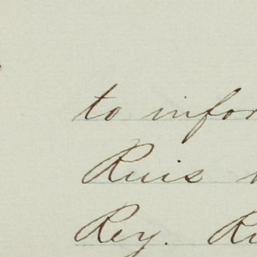 to infor
Ruis
Rey. Ru